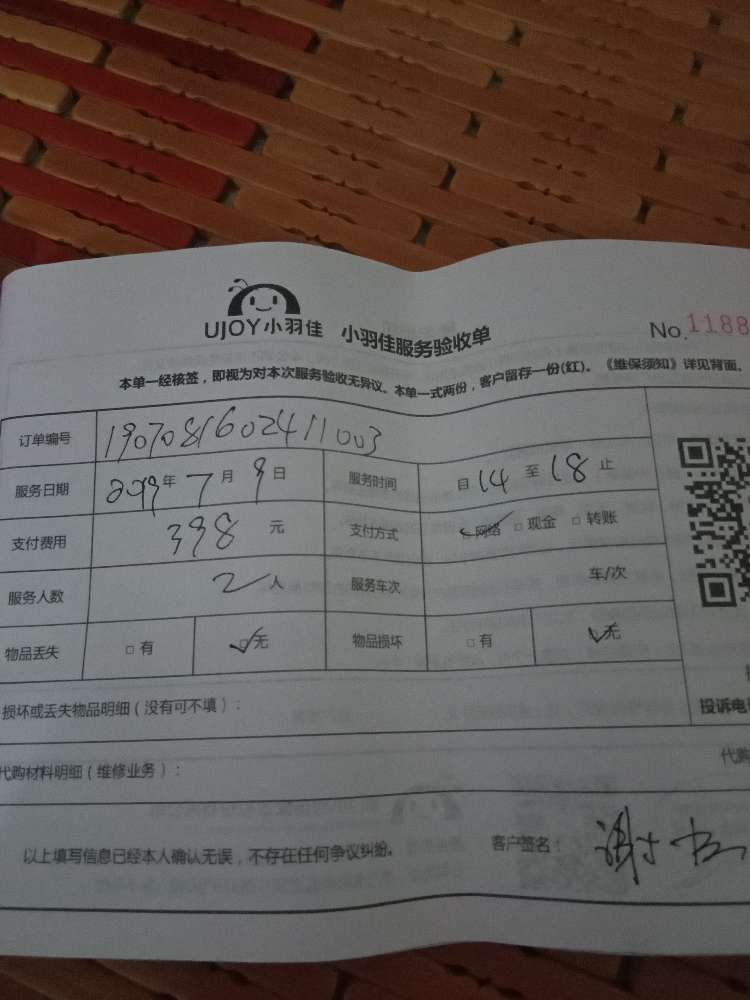 UJOY小羽佳 小羽佳服务验收单 No.1188
本单一经核签，即视为对本次服务验收无异议。本单一式两份，客户留存一份(红)。《维保须知》详见背面。
订单编号 1907081602411003
服务日期 2019年7月9日 服务时间 自14至18止
支付费用 398元 支付方式 网络 □现金 □转账
服务人数 2人 服务车次 车/次
物品丢失 □有 ☑无 物品损坏 □有 ☑无
损坏或丢失物品明细（没有可不填）：
投诉电
代购材料明细（维修业务）： 代购
以上填写信息已经本人确认无误，不存在任何争议纠纷。 客户签名：谢